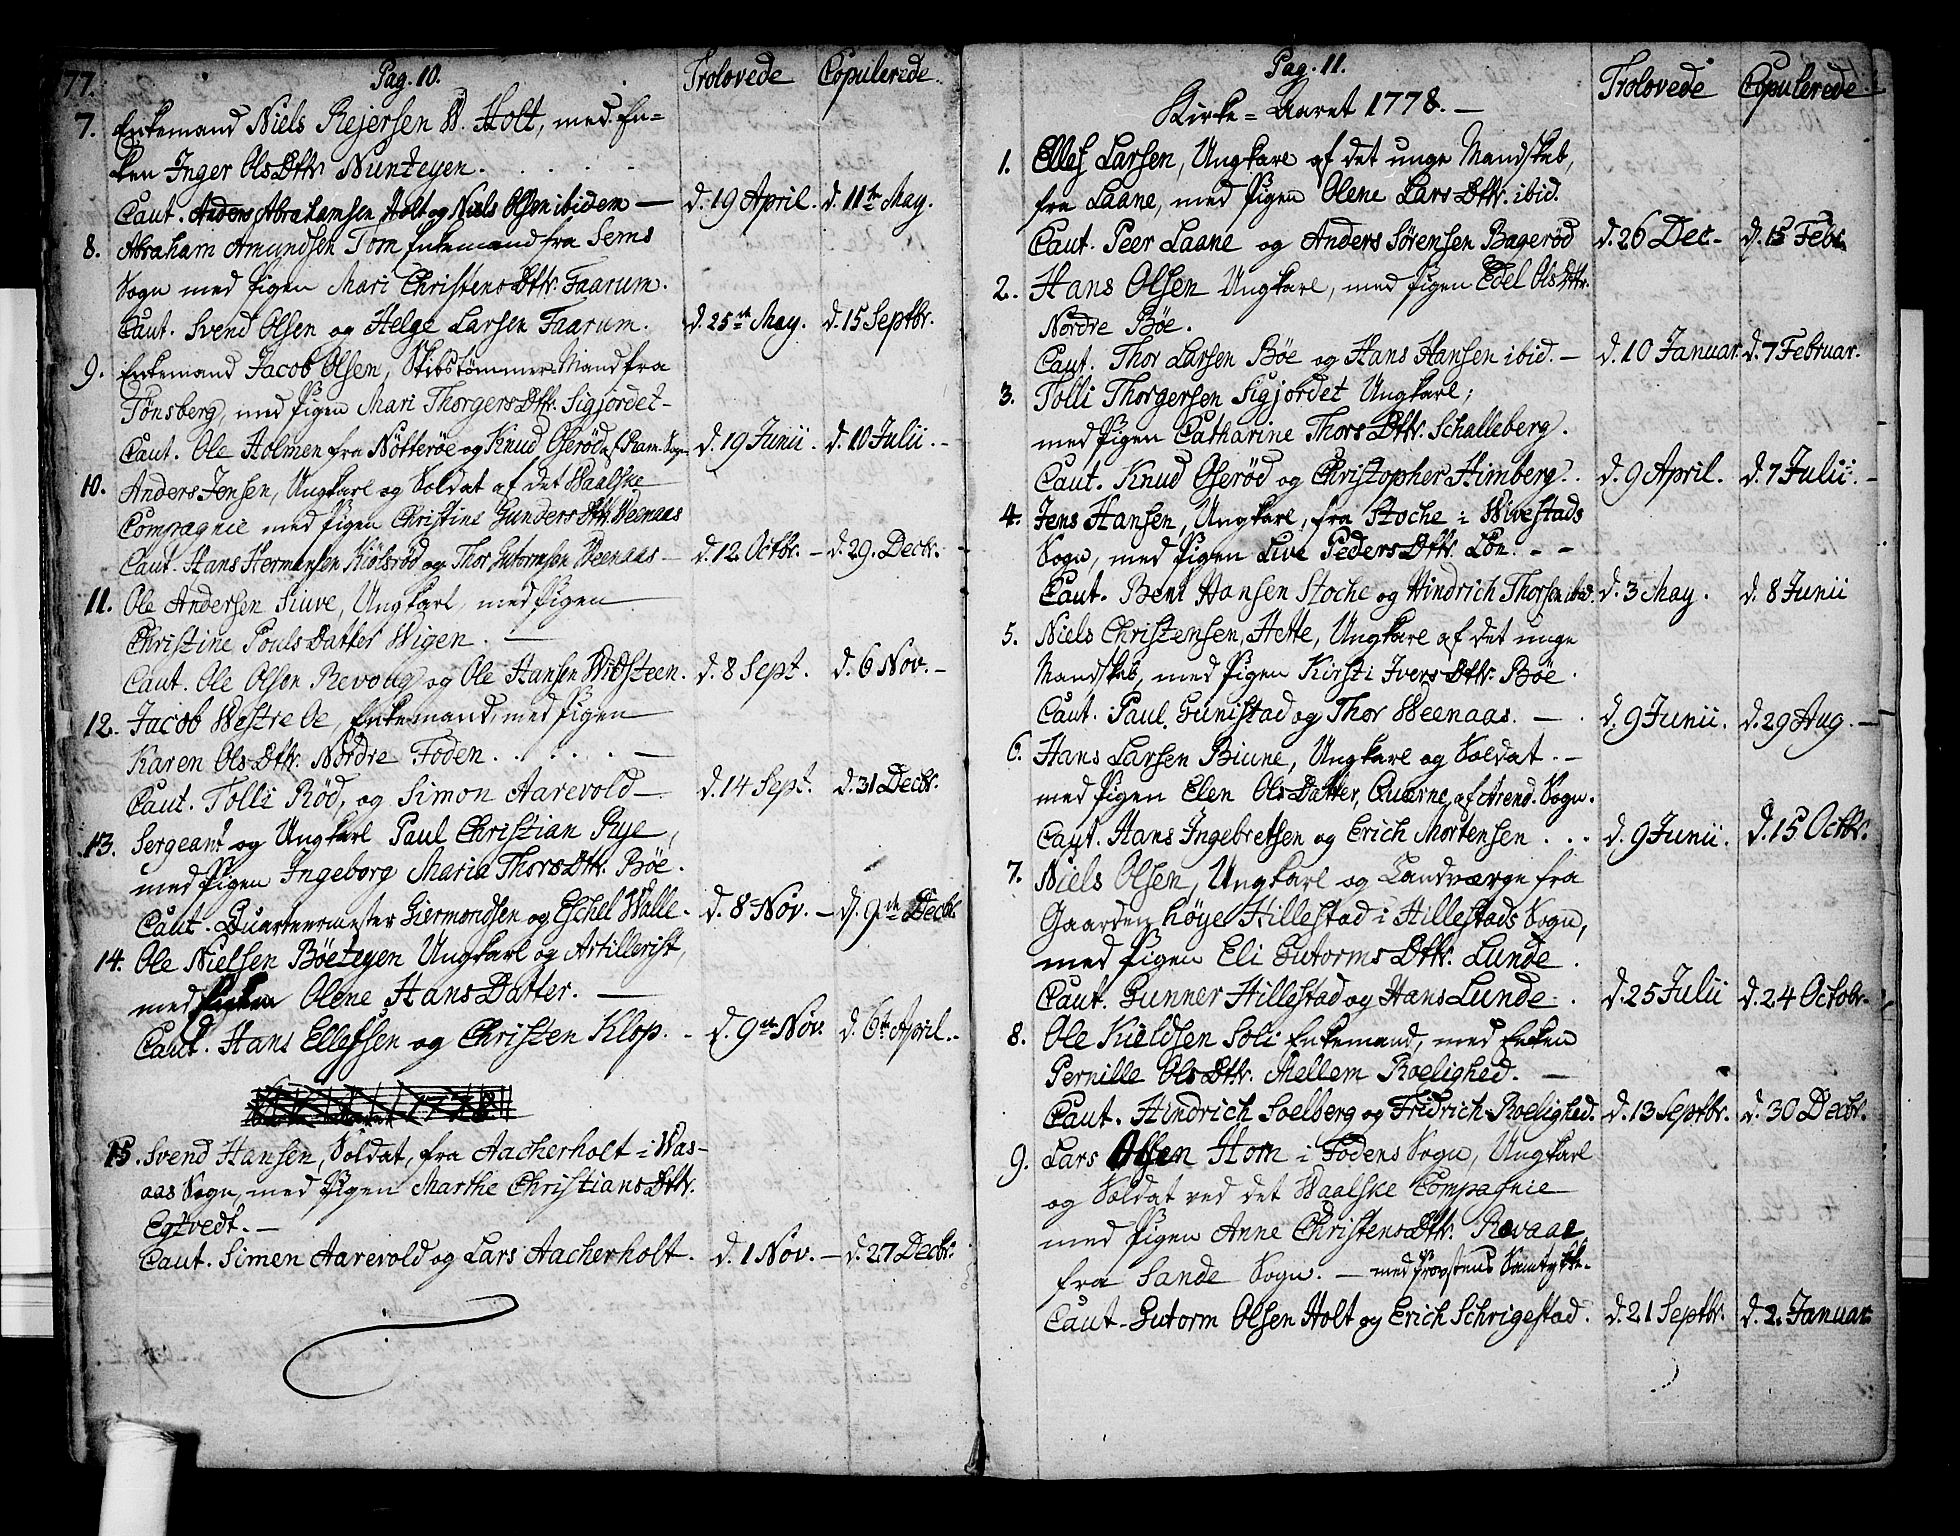 77. Pag. 10. Trolovede Copulerede.
7. Enkemand Niels Rejersen W. Holt, med En-
ken Inger Ols Dttr. Nuntegen.
Caut. Anders Abrahamsen Holt og Niels Olsen ibidem — d. 19 April. d. 11te May.
8. Abraham Amundsen Tom Enkemand fra Sems
Sogn med Pigen Mari Christens Dttr. Faarum.
Caut. Svend Olsen og Helge Larsen Faarum. d. 25de May. d. 15 Septbr.
9. Enkemand Jacob Olsen, Skibstömmer Mand fra
Tönsberg, med Pigen Mari Thorgers Dttr. Sigjordet-
Caut. Ole Holmen fra Nötteröe og Knud Oseröd af Ram. Sogn d. 19 Junii. d. 10 Julii. -
10. Anders Jensen, Ungkarl og Soldat af det Waalske
Compagnie med Pigen Christine Gunders Dttr. Weenaas
Caut. Hans Hermansen Kiölsröd og Thor Gutormsen Weenaas - d. 12 Octbr. - d. 29. Decbr.
11. Ole Andersen Siuve, Ungkarl, med Pigen
Christine Pouls Datter Wigen. —
Caut. Ole Olsen Revoug og Ole Hansen Widsteen. d. 8 Sept. d. 6 Nov. -
12. Jacob Westre Oe, Enkemand, med Pigen
Karen Ols Dttr. Nordre Foden. . . . . —
Caut. Tolli Röd, og Simon Aarevold - d. 14 Sept. d. 31 Decbr.
13. Sergeant og Ungkarl Paul Christian Rye,
med Pigen Ingeborg Maria Thors Dttr. Böe.
Caut. Quarteermester Giermondsen og Eschel Walle. d. 8 Nov. - d. 9de Decbr
14. Ole Nielsen Böetegen Ungkarl og Artillerist,
med Pigen Olene Hans Datter. —
Caut. Hans Ellefsen og Christen Klop. - d. 9de Nov. d. 6te April. -
1778
15. Svend Hansen, Soldat, fra Aacherholt i Was-
aas Sogn, med Pigen Marthe Christians Dttr.
Egtvedt. —
Caut. Simen Aarevold og Lars Aacherholt. d. 1 Nov. - d. 27 Decbr.
Pag. 11. Trolovede Copulerede.
Kirke-Aaret 1778. —
1. Ellef Larsen, Ungkarl af det unge Mandskab,
fra Laane, med Pigen Olene Lars Dttr. ibid.
Caut. Peer Laane og Anders Sörensen Bageröd d. 26 Dec. d. 15 Febr.
2. Hans Olsen Ungkarl, med Pigen Edel Ols Dttr.
Nordre Böe.
Caut. Thor Larsen Böe og Hans Hansen ibid. - d. 10 Januar. d. 7 Februar.
3. Tolli Thorgersen Sigjordet Ungkarl;
med Pigen Catharine Thors Dttr. Schalleberg.
Caut. Knud Oseröd og Christopher Himberg. . d. 9 April. d. 7 Julii. -
4. Jens Hansen, Ungkarl, fra Stoche i Wivestads
Sogn, med Pigen Live Peders Dttr. Lön. - -
Caut. Bent Hansen Stoche og Hindrich Thorsen ibid. d. 3 May. d. 8 Junii
5. Niels Christensen, Hette, Ungkarl af det unge
Mandskab, med Pigen Kirsti Ivers Dttr. Böe.
Caut. Paul Gunistad og Thor Weenaas. - . d. 9 Junii. d. 29 Aug. -
6. Hans Larsen Biune, Ungkarl og Soldat. -
med Pigen Elen Ols Datter, Quærne, af Arend. Sogn.
Caut. Hans Ingebretsen og Erich Mortensen . . . d. 9 Junii. d. 15 Octbr.
7. Niels Olsen, Ungkarl og Landværge fra
Gaarden höye Hillestad i Hillestads Sogn,
med Pigen Eli Gutorms Dttr. Lunde.
Caut. Gunner Hillestad og Hans Lunde. . d. 25 Julii d. 24 Octobr.
8. Ole Kieldsen Soli Enkemand, med Enken
Pernille Ols Dttr. Mellem Roelighed. —
Caut. Hindrich Soelberg og Fridrich Roelighed. d. 13 Septbr. d. 30 Decbr.
9. Lars Olsen Hom i Fodens Sogn, Ungkarl
og Soldat ved det Waalske Compagnie
med Pigen Anne Christens Dttr. Revaae,
fra Sande Sogn. — med Provstens Samtykke.
Caut. Gutorm Olsen Holt og Erich Schrigestad. d. 21 Septbr. d. 2. Januar.